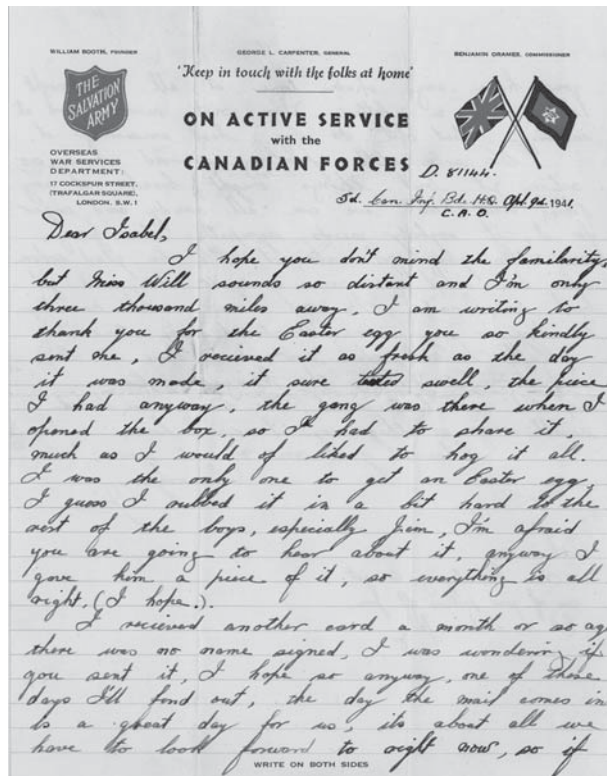 WILLIAM BOOTH, FOUNDER
GEORGE L. CARPENTER, GENERAL
BENJAMIN ORAMES, COMMISSIONER
"Keep in touch with the folks at home"
THE
SALVATION
ARMY
ON ACTIVE SERVICE
with the
CANADIAN FORCES
OVERSEAS
WAR SERVICES
DEPARTMENT:
17 COCKSPUR STREET,
(TRAFALGAR SQUARE),
LONDON, S.W.1
D. 81144.
Can. Inf. Bde. H.Q. Apl. 9th 1941.
C.A.O.
Dear Isabel,
I hope you don't mind the familarity,
but Miss Will sounds so distant and I'm only
three thousand miles away, I am writing to
thank you for the Easter egg you so kindly
sent me, I recieved it as fresh as the day
it was made, it sure tasted swell, the piece
I had anyway, the gang was there when I
opened the box, so I had to share it,
much as I would of liked to hog it all.
I was the only one to get an Easter egg,
I guess I rubbed it in a bit hard to the
rest of the boys, especially Jim, I'm afraid
you are going to hear about it, anyway I
gave him a piece of it, so everything is all
right. (I hope.).
I recieved another card a month or so ago
there was no name signed, I was wondering if
you sent it, I hope so anyway, one of these
days I'll find out, the day the mail comes in
is a great day for us, its about all we
have to look forward to right now, so if
WRITE ON BOTH SIDES